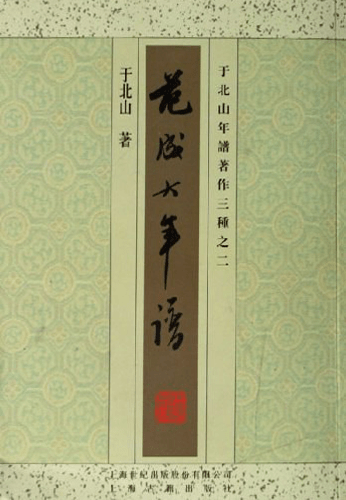 于北山年譜著作三種之二
范成大年譜
于北山 著
上海世纪出版股份有限公司
上海古籍出版社